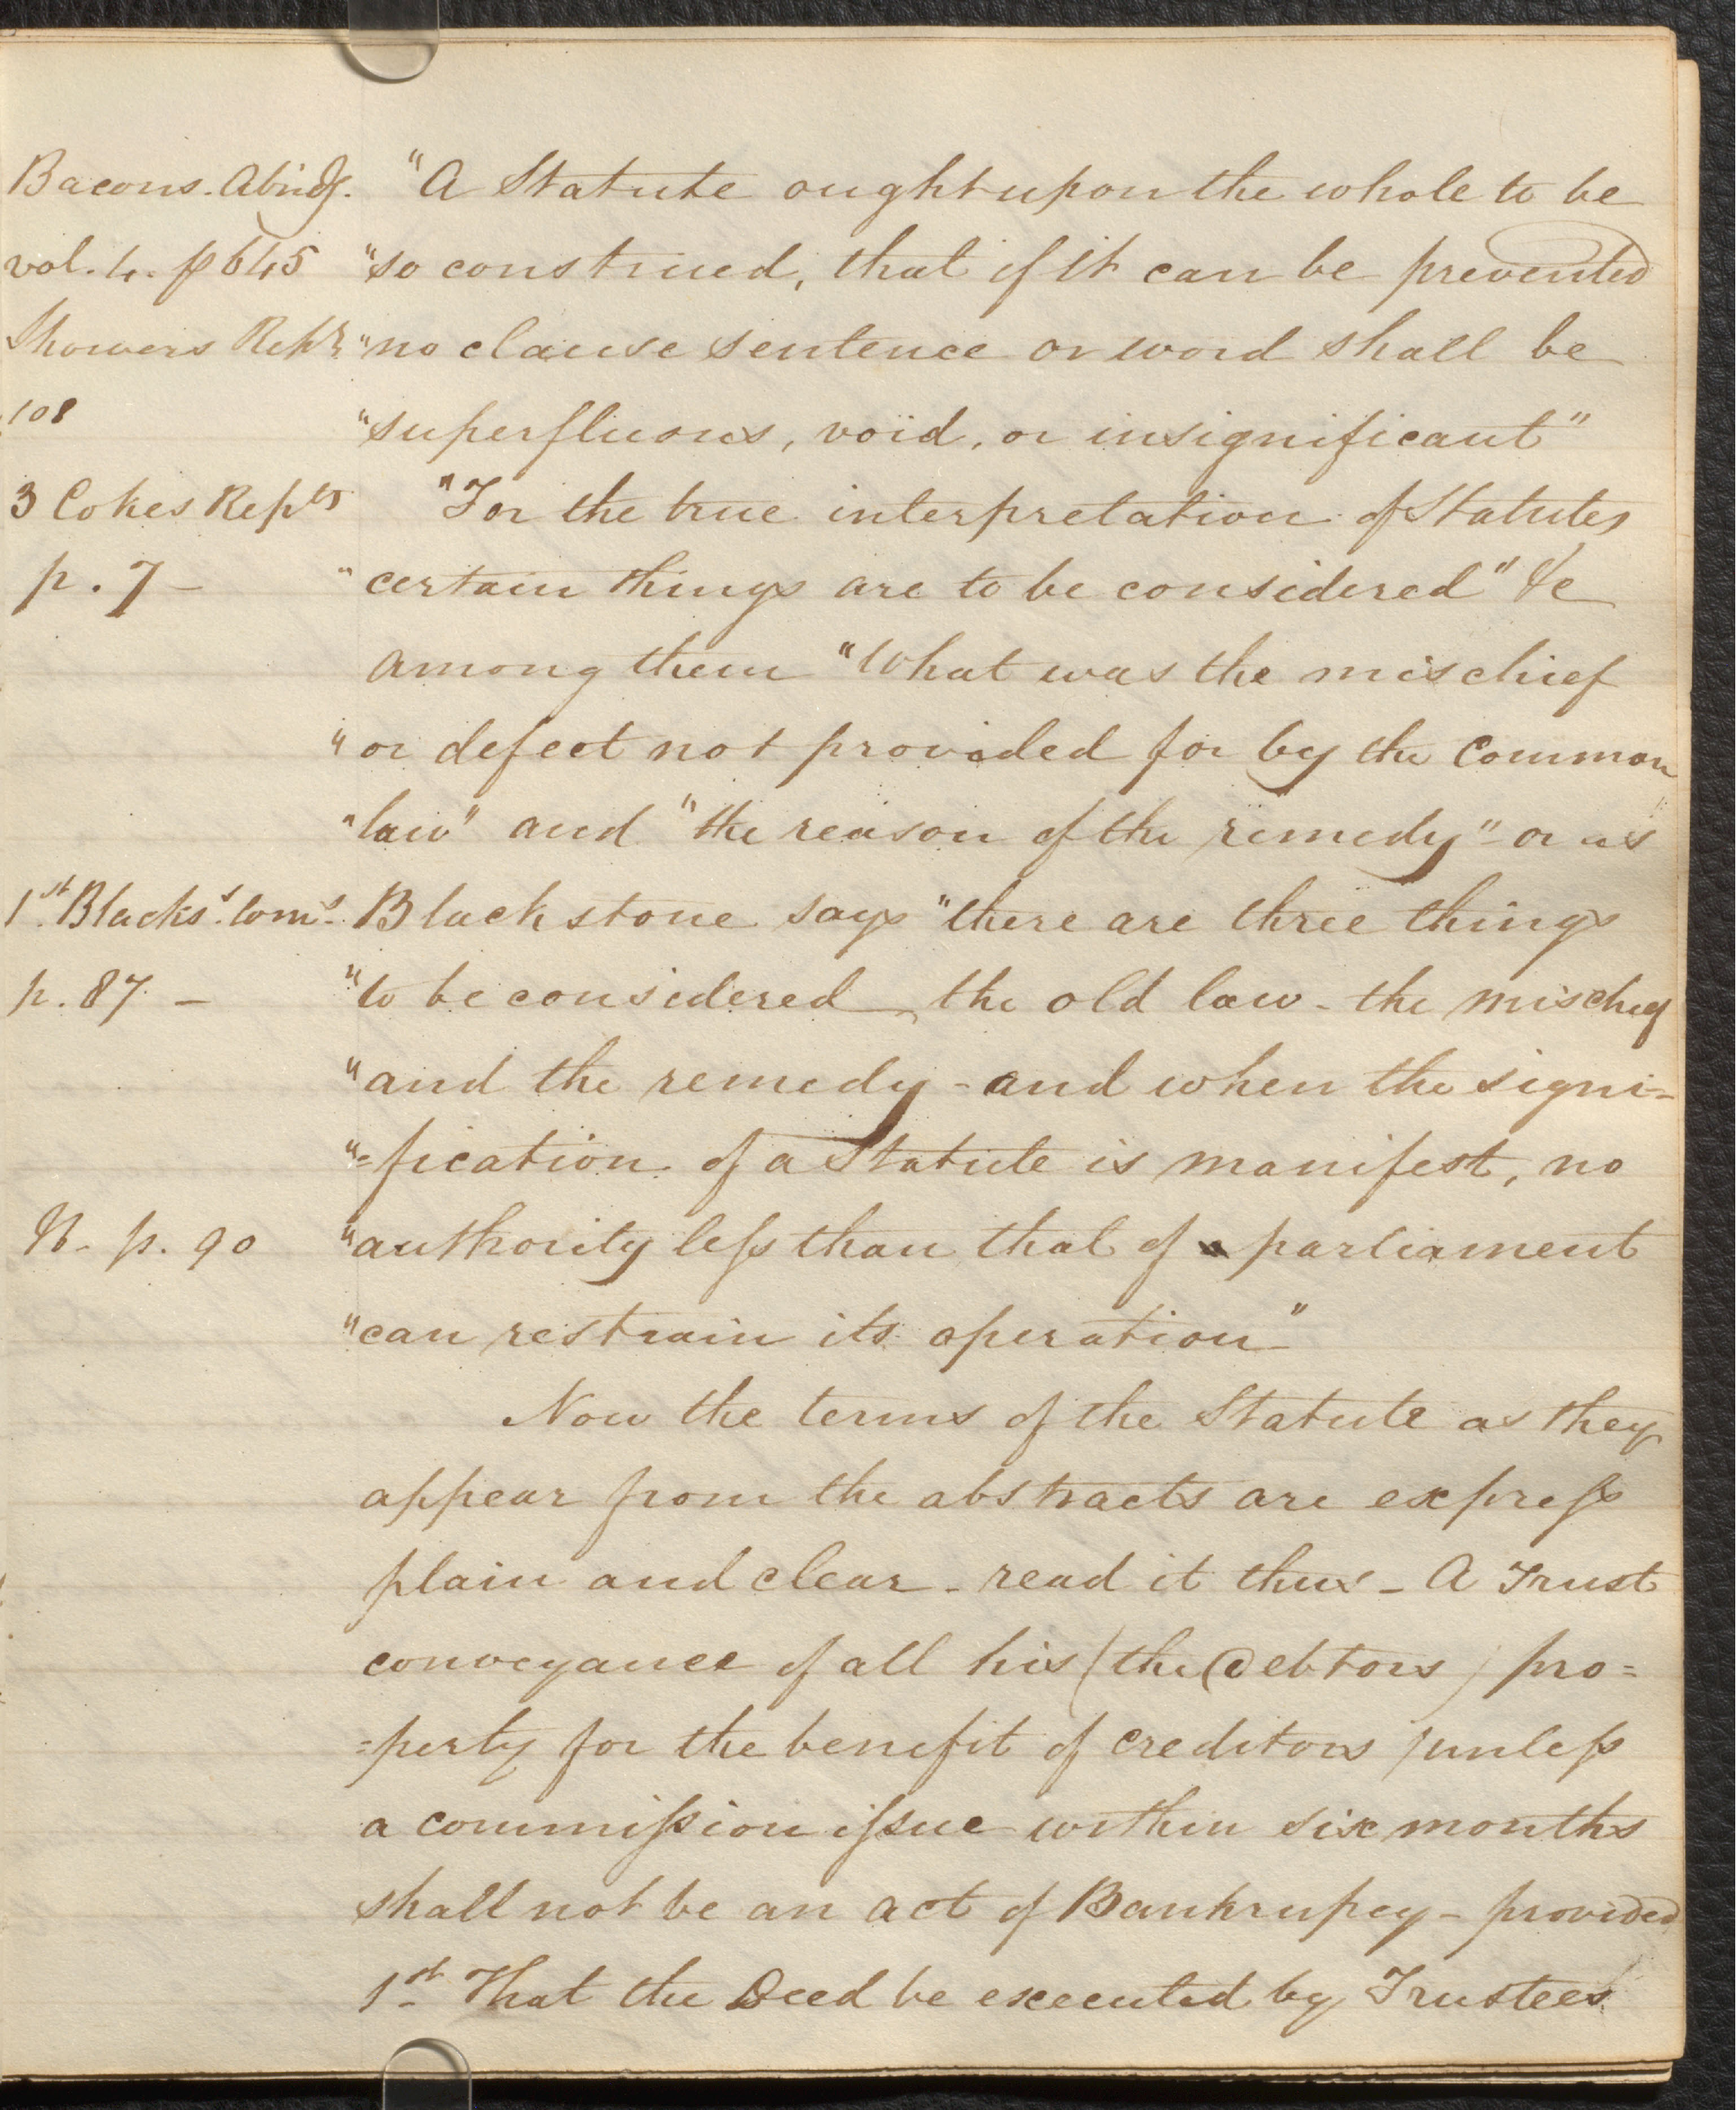 Bacons. Abridg. "A Statute ought upon the whole to be
vol. 4. p 645 "so construed, that if it can be prevented
Showers Rep.ts "no clause sentence or word shall be
108 "superfluous, void, or insignificant"
3 Cokes Repts "For the true interpretation of Statutes
p. 7 - "certain things are to be considered" &c
among them "What was the mischief
"or defect not provided for by the Common
"law" and "the reason of the remedy" - or as
1st. Blacks.s Coms. Blackstone says "there are three things
p. 87. - "to be considered, the old law - the mischief
"and the remedy - and when the signi-
"=fication of a Statute is manifest, no
p. 90 "authority less than that of parliament
"can restrain its operation"
Now the terms of the Statute as they
appear from the abstracts are express
plain and clear - read it thus - A Trust
conveyance of all his (the Debtors) pro=
=perty for the benefit of creditors /unless
a commission issue within six months
shall not be an act of Bankrupcy - provided
1st. That the Deed be executed by Trustees